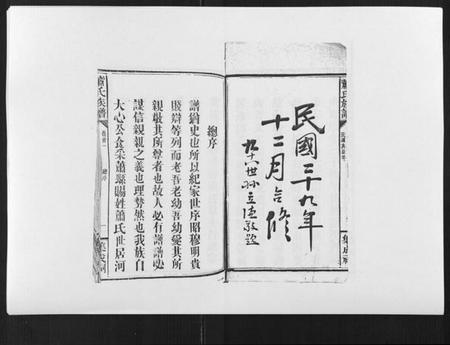 蕭氏族譜
民國三十九年
十二月合修
世孫立德敬題
集成祠
總序
譜猶史也所以紀家世序昭穆明貴
賤辯等列而老吾老幼吾幼愛其所
親敬其所尊者也故人必有譜譜必
謹信親親之義也理勢然也我族自
大心公食采蕭縣賜姓蕭氏世居河
蕭氏族譜
卷首
總序